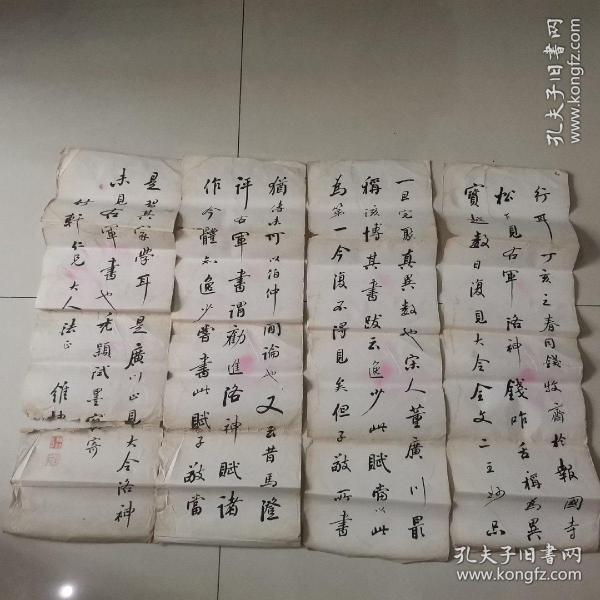 行耳 丁亥之春同錢牧齋於報國寺
松下見右軍洛神錢咋舌稱為異
寶越數日復見大令全文二王妙品
一旦完聚真異數也宋人董廣川最
稱該博其書跋云逸少此賦當以此
為第一今復不得見矣但子敬所書
猶未可以伯仲間論也又云昔馬澄
評右軍書謂勸進洛神賦諸
作今體知逸少嘗書此賦子敬當
是習其家學耳 是廣川止見大令洛神
未見右軍書也禿穎試墨寄
竹軒仁兄大人法正 維
孔夫子旧书网
www.kongfz.com
孔夫子旧书网
www.kongfz.com